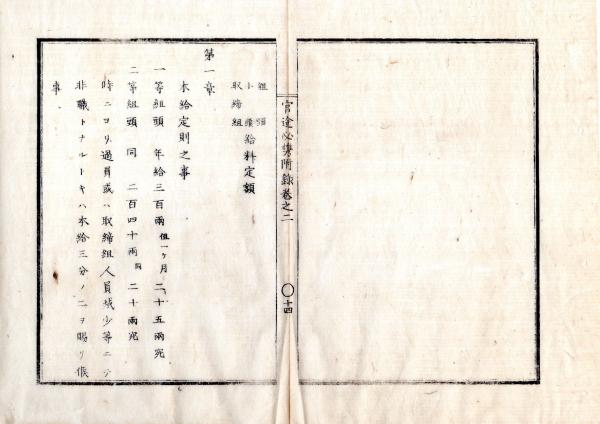 官途必携附録巻之二
〇十四
組頭
小頭給料定額
取締組
第一章
本給定則之事
一等組頭 年給三百両 但一ヶ月 二十五両宛
二等組頭 同 二百四十両 同 二十両宛
時ニヨリ過員或ハ取締組人員減少等ニテ
非職トナルトキハ本給三分ノ二ヲ賜リ候
事